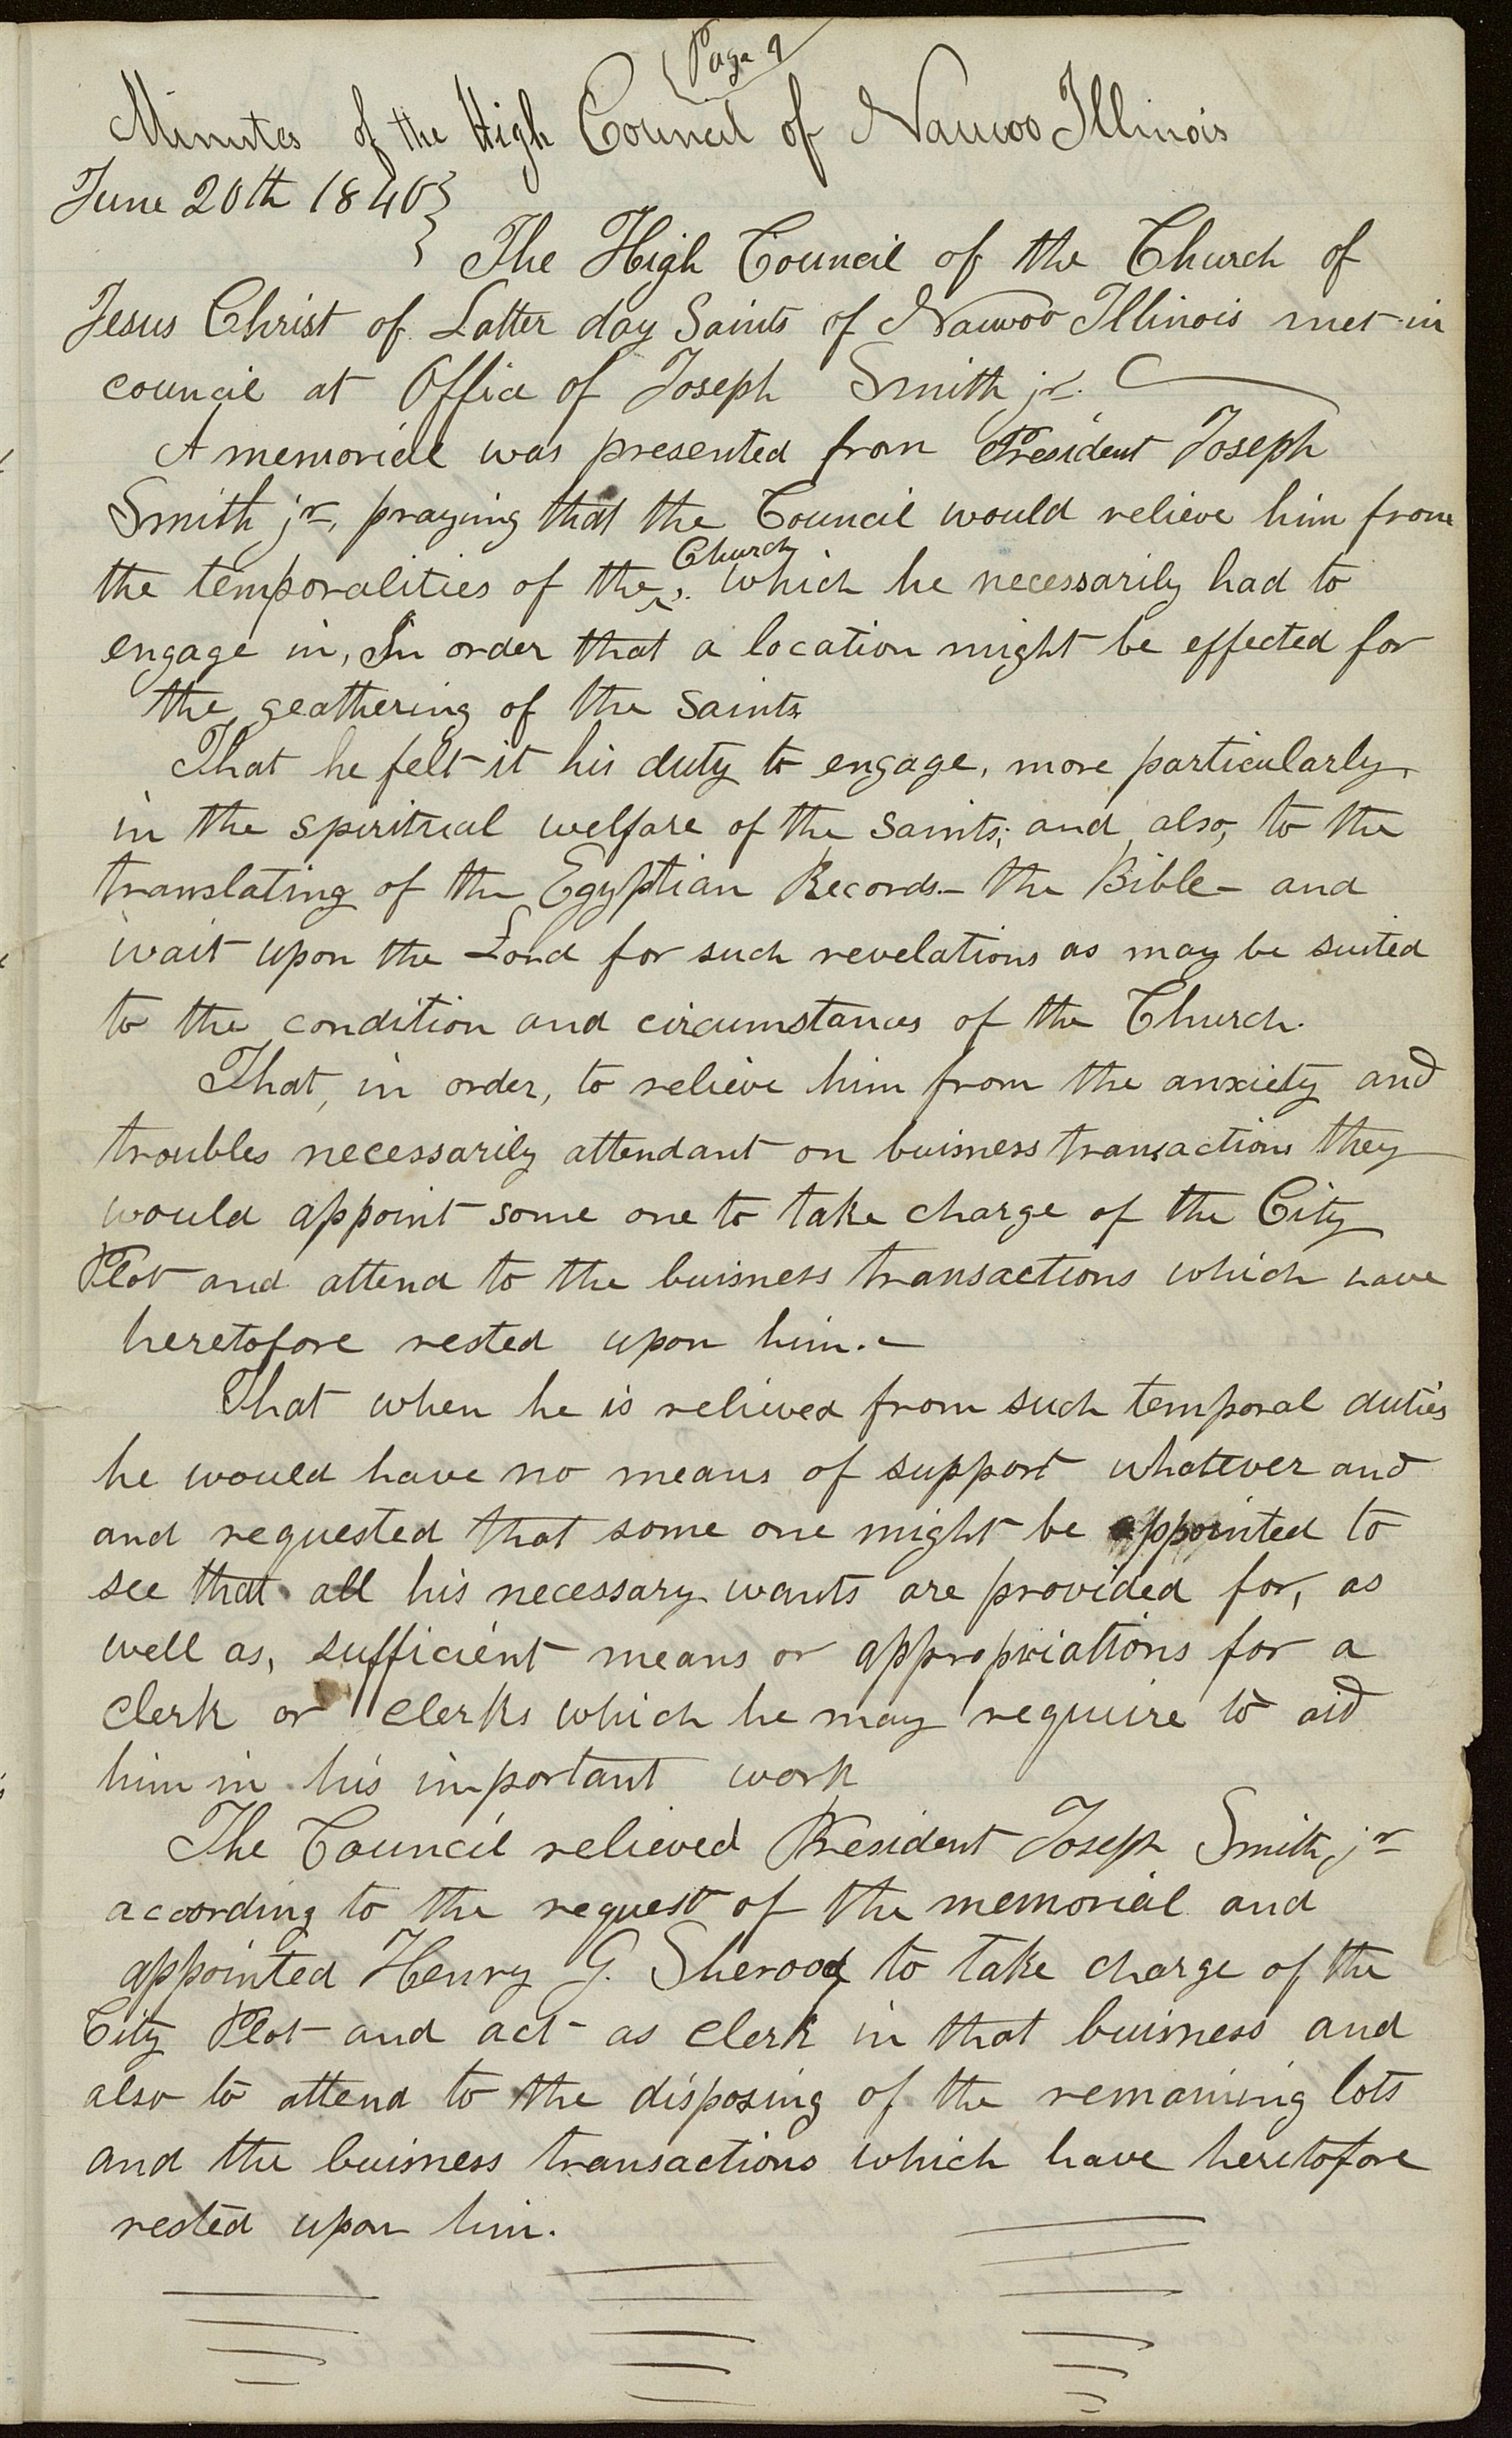 Page 9
Minutes of the High Council of Nauvoo Illinois
June 20th 1840}
} The High Council of the Church of
Jesus Christ of Latter day Saints of Nauvoo Illinois met in
council at Office of Joseph Smith jr.
A memorial was presented from President Joseph
Smith jr, praying that the Council would relieve him from
Church
the temporalities of the ^, which he necessarily had to
engage in, In order that a location might be effected for
the geathering of the Saints
That he felt it his duty to engage, more particularly,
in the spiritual welfare of the Saints; and also, to the
translating of the Egyptian Records— the Bible— and
wait upon the Lord for such revelations as may be suited
to the condition and circumstances of the Church.
That, in order, to relieve him from the anxiety and
troubles necessarily attendant on buisness transactions they
would appoint some one to take charge of the City
Plot and attend to the buisness transactions which have
heretofore rested upon him.—
That when he is relieved from such temporal duties
he would have no means of support whatever and
and requested that some one might be appointed to
see that all his necessary wants are provided for, as
well as, sufficient means or appropriations for a
clerk or clerks which he may requiire to aid
him in his important work
The Council relieved President Joseph Smith, jr
according to the request of the memorial and
appointed Henry G. Sherood to take charge of the
City Plot and act as clerk in that buisness and
also to attend to the disposing of the remaining lots
and the buisness transactions which have heretofore
rested upon him.